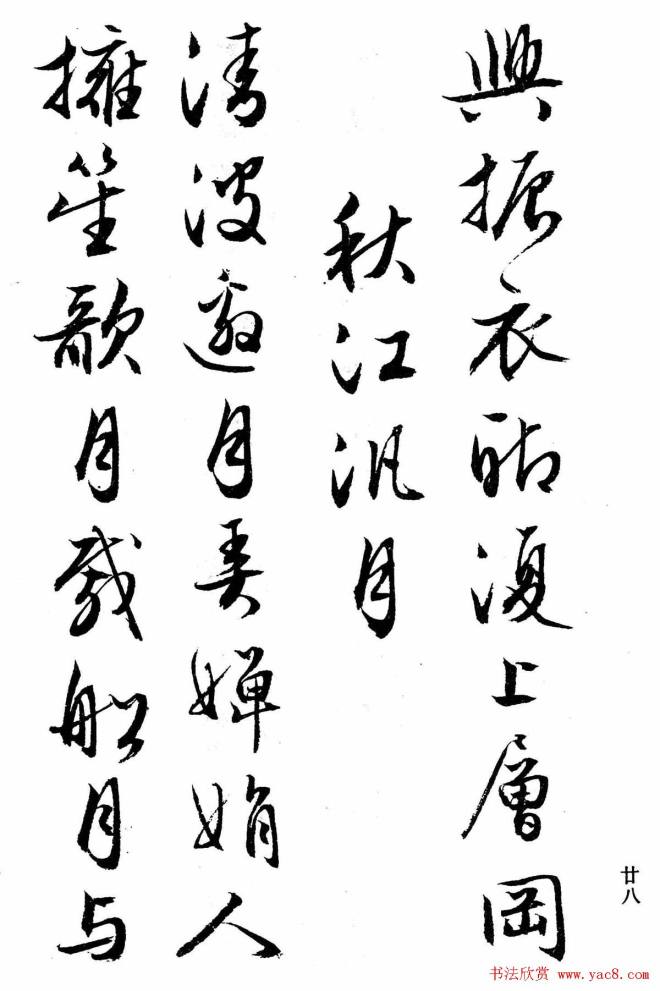 興振衣昨復上層岡
秋江汎月
清波邀月弄嬋娟人
擁笙歌月载船月与
廿八
书法欣赏 www.yac8.com